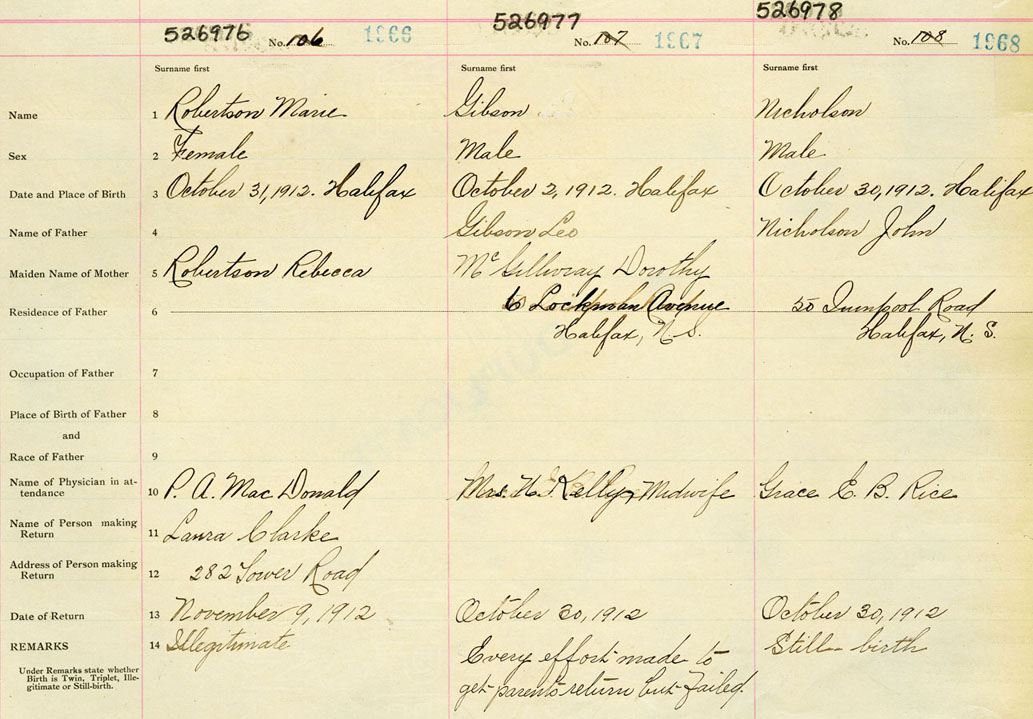 526976 No. 106 1966
526977 No. 107 1967
526978 No. 108 1968
Surname first Surname first Surname first
Name 1 Robertson Marie Gibson Nicholson
Sex 2 Female Male Male
Date and Place of Birth 3 October 31, 1912. Halifax October 2, 1912. Halifax October 30, 1912. Halifax
Name of Father 4 Gibson Leo Nicholson John
Maiden Name of Mother 5 Robertson Rebecca McGillivray Dorothy
Residence of Father 6 6 Lockman Avenue 50 Quinpool Road
Halifax, N.S. Halifax, N.S.
Occupation of Father 7
Place of Birth of Father 8
and
Race of Father 9
Name of Physician in at-
tendance 10 P. A. Mac Donald Mrs. H. Kelly, Midwife Grace E. B. Rice
Name of Person making
Return 11 Laura Clarke
Address of Person making
Return 12 282 Tower Road
Date of Return 13 November 9, 1912 October 30, 1912 October 30, 1912
REMARKS 14 Illegitimate Every effort made to Still-birth
Under Remarks state whether
Birth is Twin, Triplet, Ille-
gitimate or Still-birth.
get parents return but failed.